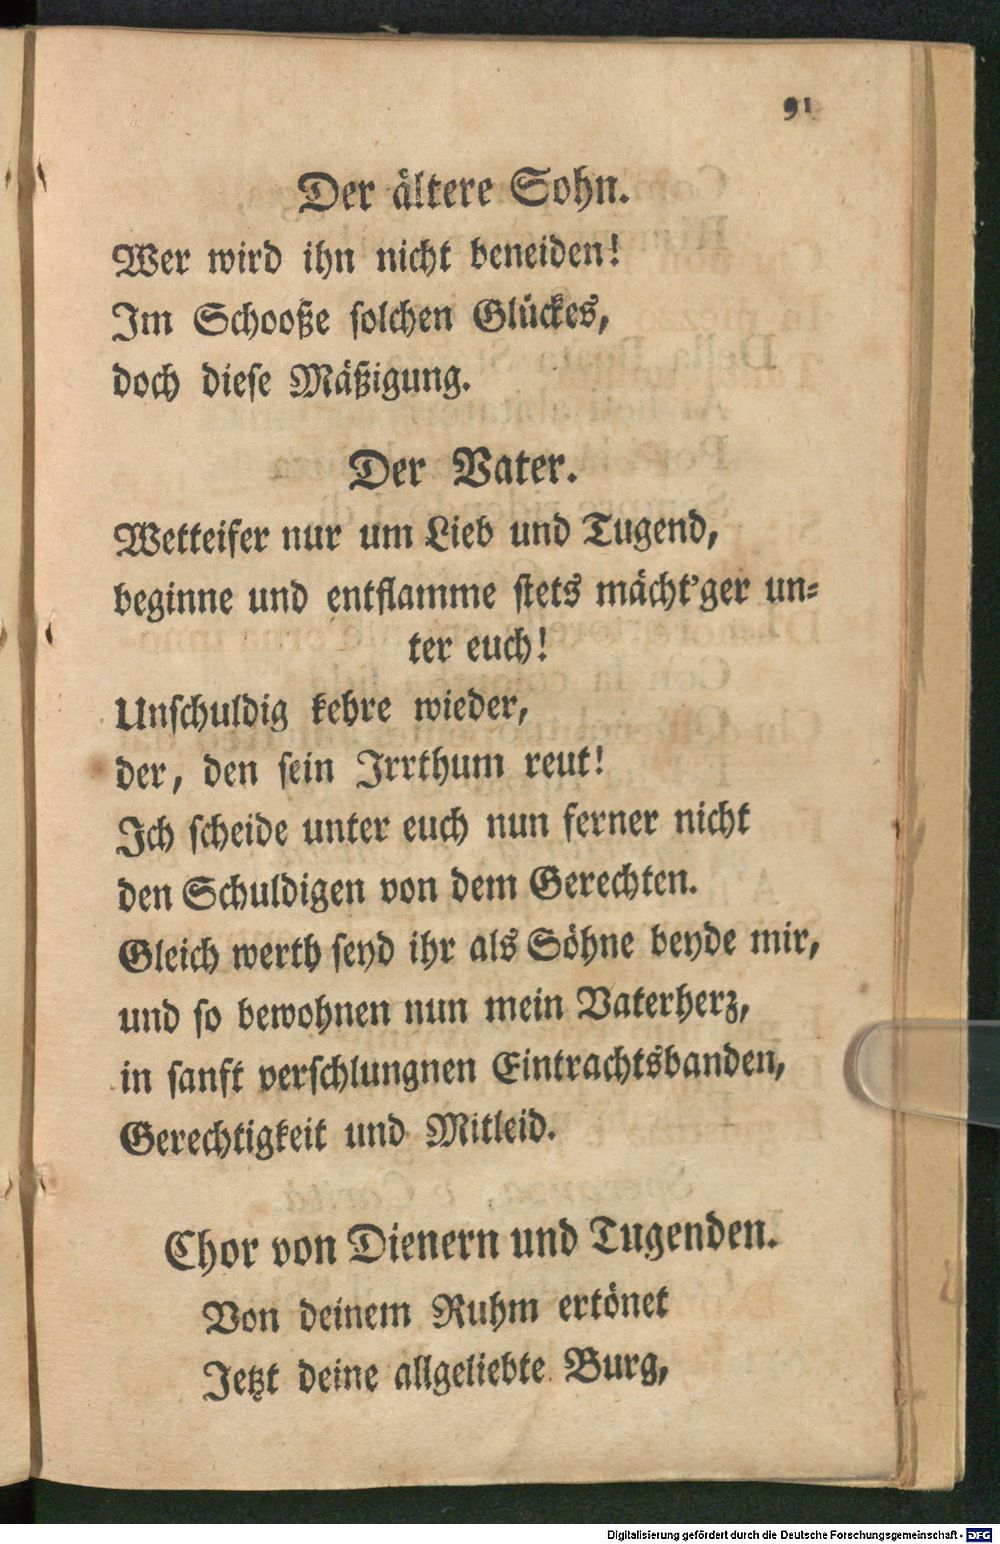 91
Der ältere Sohn.
Wer wird ihn nicht beneiden!
Im Schooße solchen Glückes,
doch diese Mäßigung.
Der Vater.
Wetteifer nur um Lieb und Tugend,
beginne und entflamme stets mächt'ger un-
ter euch!
Unschuldig kehre wieder,
der, den sein Irrthum reut!
Ich scheide unter euch nun ferner nicht
den Schuldigen von dem Gerechten.
Gleich werth seyd ihr als Söhne beyde mir,
und so bewohnen nun mein Vaterherz,
in sanft verschlungnen Eintrachtsbanden,
Gerechtigkeit und Mitleid.
Chor von Dienern und Tugenden.
Von deinem Ruhm ertönet
Jetzt deine allgeliebte Burg,
Digitalisierung gefördert durch die Deutsche Forschungsgemeinschaft - DFG